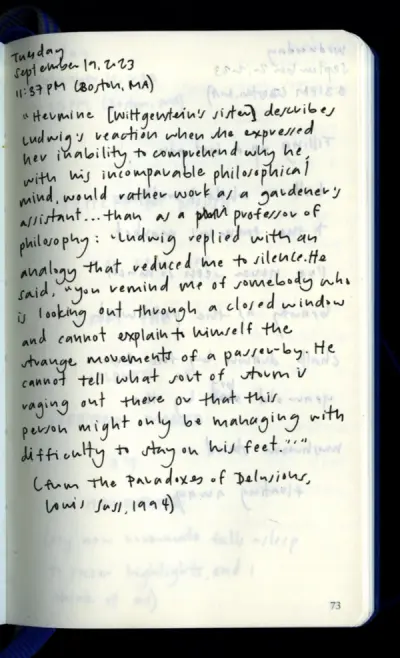 Tuesday
September 19, 2023
11:37 PM (Boston, MA)
"Hermine [Wittgenstein's sister] describes
Ludwig's reaction when she expressed
her inability to comprehend why he,
with his incomparable philosophical
mind, would rather work as a gardener's
assistant... than as a professor of
philosophy: "Ludwig replied with an
analogy that reduced me to silence. He
said, "you remind me of somebody who
is looking out through a closed window
and cannot explain to himself the
strange movements of a passer-by. He
cannot tell what sort of storm is
raging out there or that this
person might only be managing with
difficulty to stay on his feet."'"
(from The Paradoxes of Delusions,
Louis Sass, 1994)
73